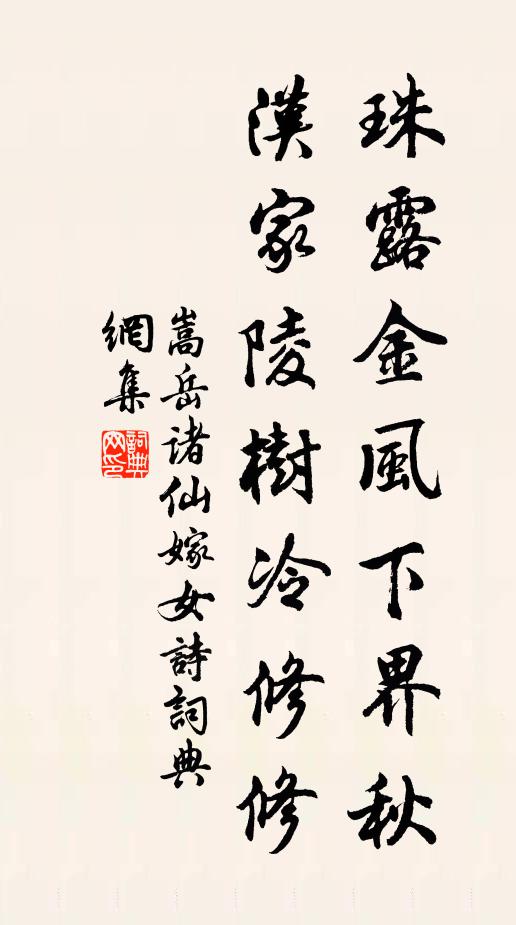 珠露金風下界秋
漢家陵樹冷修修
嵩岳諸仙嫁女詩詞典
網集
詞典
網印